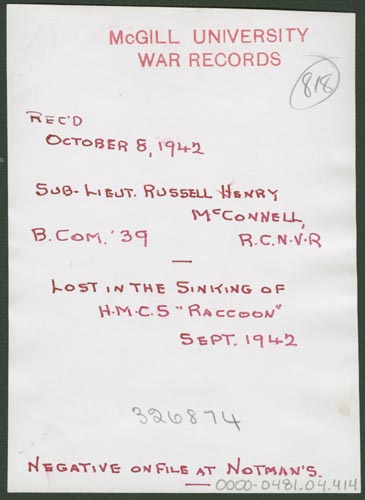 McGILL UNIVERSITY
WAR RECORDS
818
REC'D
OCTOBER 8, 1942
SUB-LIEUT. RUSSELL HENRY
McCONNELL,
B.COM. '39 R.C.N.V.R
—
LOST IN THE SINKING OF
H.M.C.S "RACCOON"
SEPT. 1942
326874
NEGATIVE ON FILE AT NOTMAN'S.
— 0000-0481.04.414